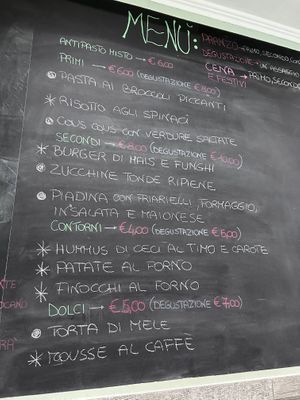 MENÙ:
PRANZO → PRIMO, SECONDO, CON
DEGUSTAZIONE → UN ASSAGGIO
CENA → PRIMO, SECONDO
E FESTIVI
ANTIPASTO MISTO → € 6,00
PRIMI → € 6,00 (DEGUSTAZIONE € 8,00)
• PASTA AI BROCCOLI PICCANTI
* RISOTTO AGLI SPINACI
• COUS COUS CON VERDURE SALTATE
SECONDI → € 8,00 (DEGUSTAZIONE € 10,00)
* BURGER DI MAIS E FUNGHI
• ZUCCHINE TONDE RIPIENE
• PIADINA CON FRIARIELLI, FORMAGGIO,
INSALATA E MAIONESE
CONTORNI → € 4,00 (DEGUSTAZIONE € 6,00)
* HUMMUS DI CECI AL TIMO E CAROTE
* PATATE AL FORNO
* FINOCCHI AL FORNO
DOLCI → € 5,00 (DEGUSTAZIONE € 7,00)
• TORTA DI MELE
* MOUSSE AL CAFFÈ